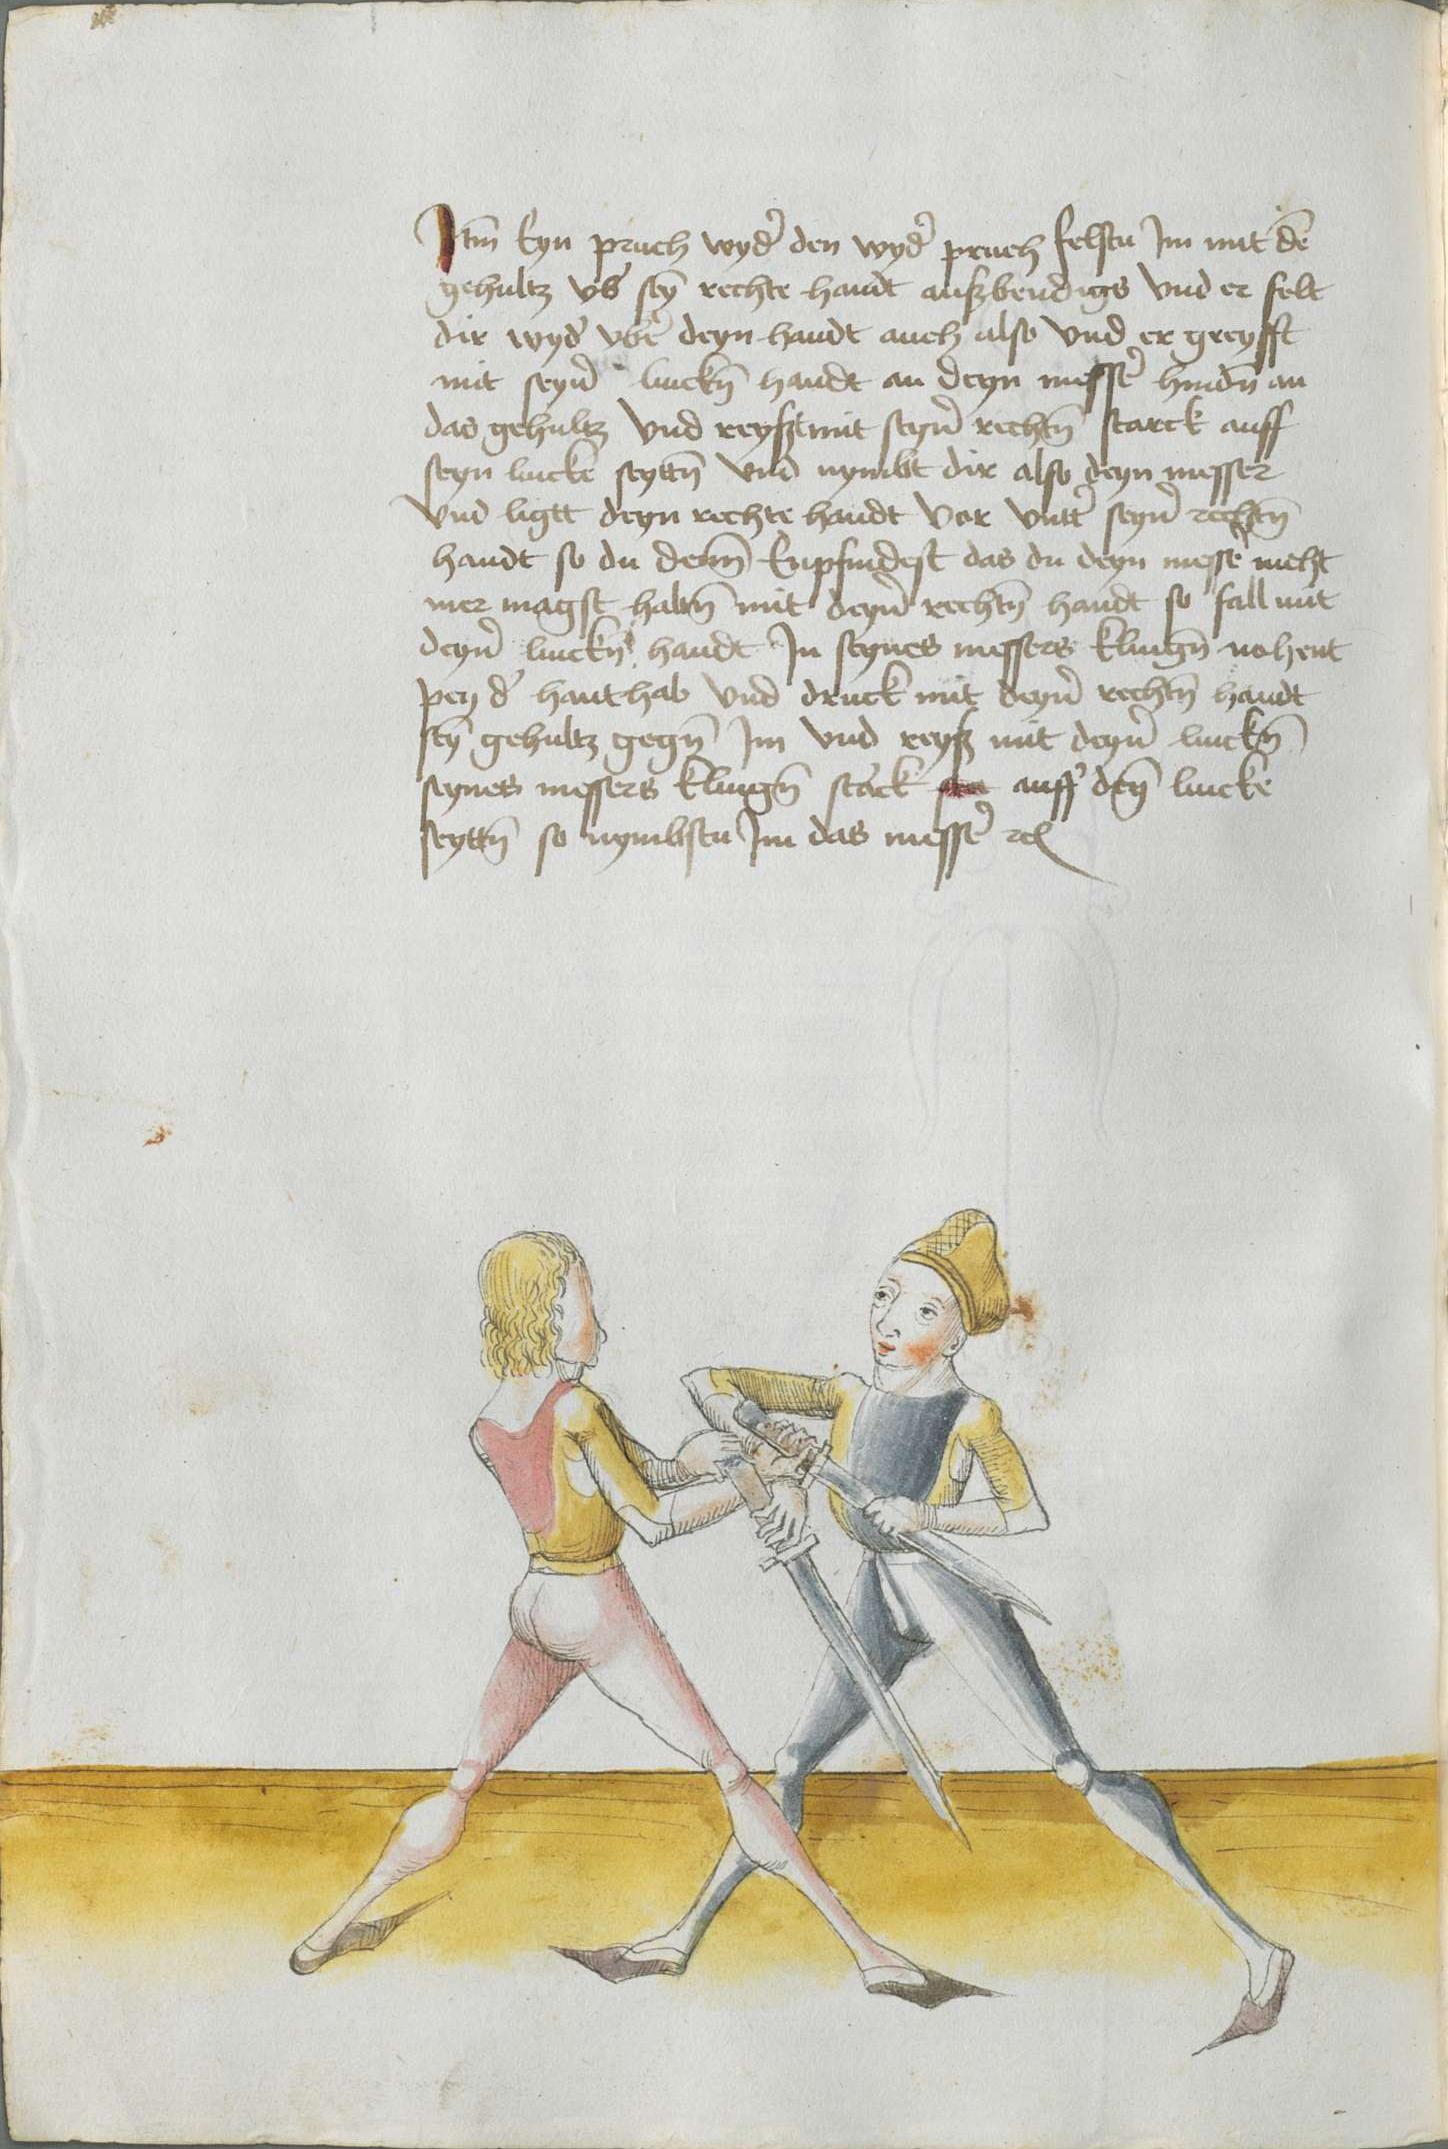 Itm̄ Eyn pruch wyd' den wyd' pruch felstu Im mit dē
gehultz vb' sey̅ rechte handt auszbendigs vnd er felt
dir wyd' vb'e deyn handt auch also vnd er greyfft
mit seyn' linckn̄ handt an deyn messe' hindn̄ an
das gehultz vnd reyszt mit seyn' rechtn̄ starck auff
seyn lincke seyttn̄ vnd nymbt dir also deyn messer
vnd ligtt deyn rechte handt vor vntt' seyn' rechtn̄
handt so du denn̄ Enpfindest das du deyn messe' nicht
mer magst haltn̄ mit deyn' rechtn̄ handt so fall mit
deyn' linckn̄ handt In seynes messers klingn̄ nohent
pey d' hanthab vnd druck mit deyn' rechtn̄ handt
sey̅ gehultz gegn̄ Im vnd reysz mit deyn' linckn̄
seynes messers klingn̄ sta'ck auff dey̅ lincke
seyttn̄ so nymbstu Im das messe' rc